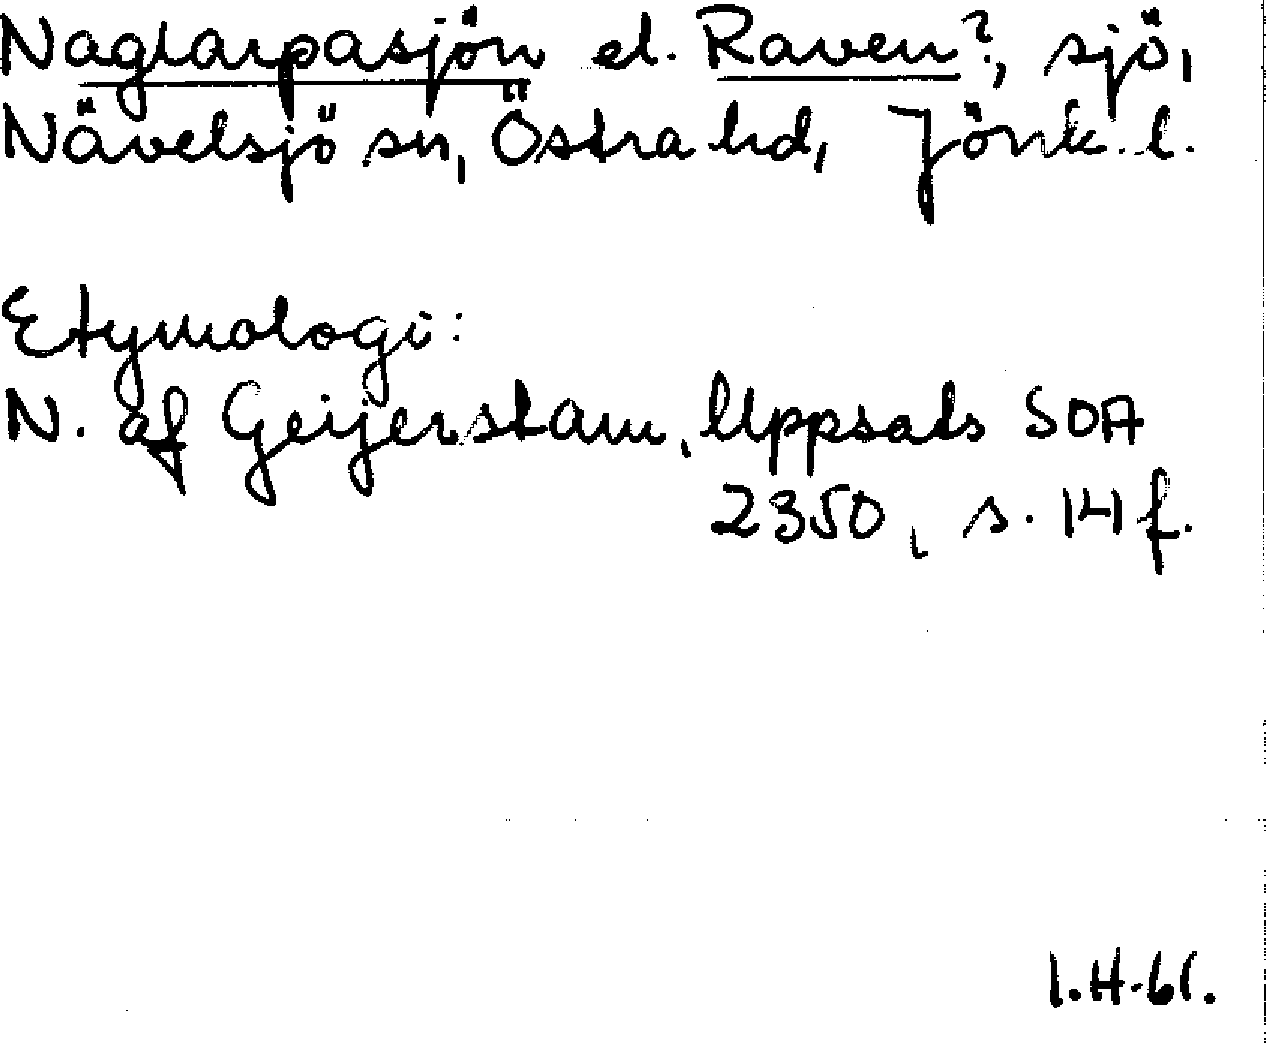 Naglarpasjön el. Raven?, sjö,
Nävelsjö sn, Östra hd, Jönk. l.
Etymologi:
N. af Geijerstam, Uppsats SOA
2350, s. 14 f.
I.H-61.